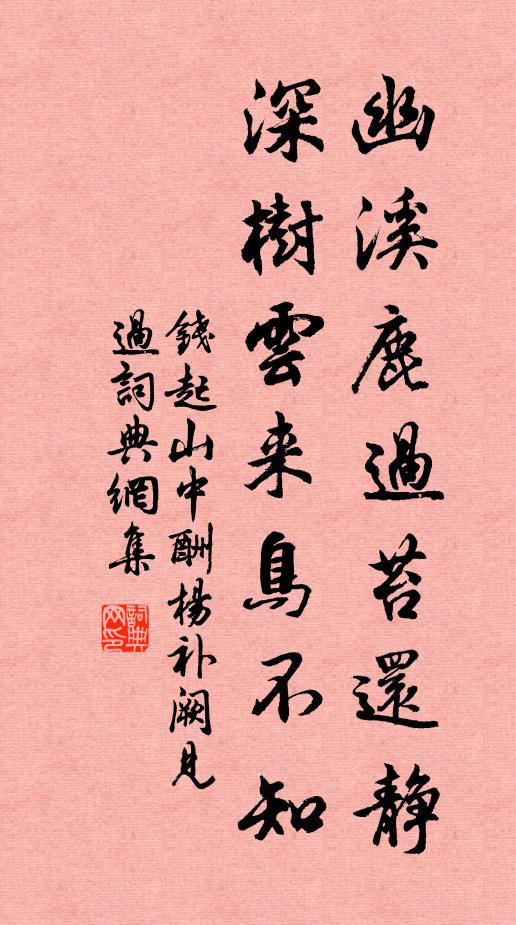 幽溪鹿過苔還静
深樹雲来鳥不知
錢起山中酬楊补阙見
過詞典網集
詞典网印